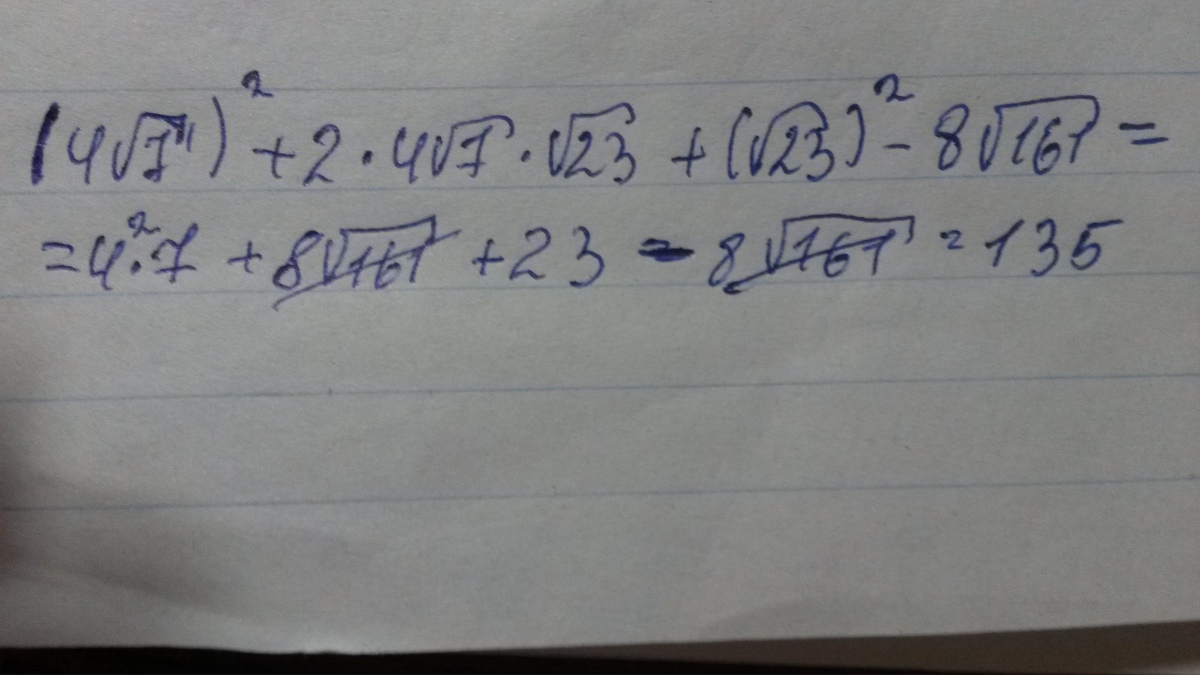 (4√7)² + 2 · 4√7 · √23 + (√23)² - 8√161 =
= 4² · 7 + 8√161 + 23 - 8√161 = 135